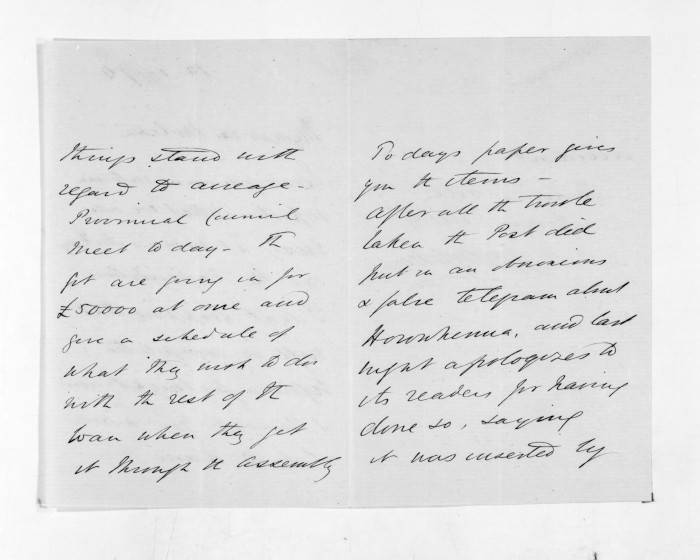 things stand with
regard to acreage -
Provincial Council
meet to day - Th
Govt are going in for
£50000 at once and
give a schedule of
what they wish to do
with th rest of th
loan when they get
it through th Assembly
To days paper gives
you th items -
After all th trouble
taken th Post did
put in an obnoxious
& false telegram about
and last
night apologizes to
its readers for having
done so, saying
it was inserted by